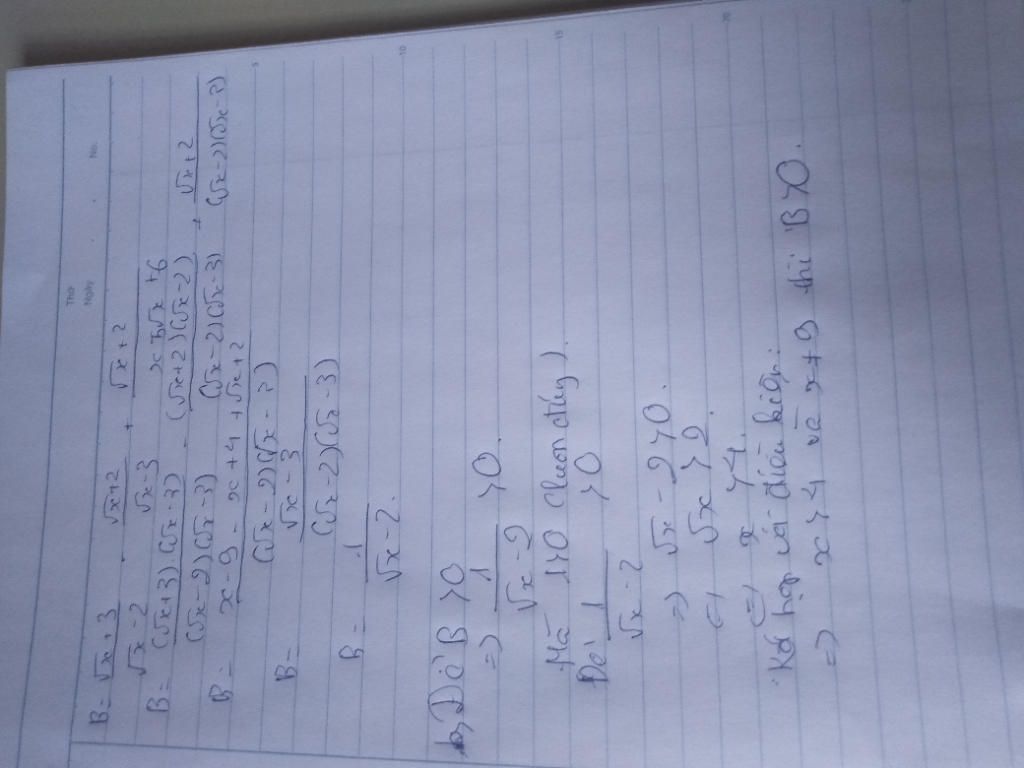 Thứ
Ngày . . No.
B = \frac{\sqrt{x}+3}{\sqrt{x}-2} - \frac{\sqrt{x}+2}{\sqrt{x}-3} + \frac{\sqrt{x}+2}{x-5\sqrt{x}+6}
B = \frac{(\sqrt{x}+3).(\sqrt{x}-3)}{(\sqrt{x}-2)(\sqrt{x}-3)} - \frac{(\sqrt{x}+2)(\sqrt{x}-2)}{(\sqrt{x}-2)(\sqrt{x}-3)} + \frac{\sqrt{x}+2}{(\sqrt{x}-2)(\sqrt{x}-3)}
B = \frac{x-9-x+4+\sqrt{x}+2}{(\sqrt{x}-2)(\sqrt{x}-3)}
B = \frac{\sqrt{x}-3}{(\sqrt{x}-2)(\sqrt{x}-3)}
B = \frac{1}{\sqrt{x}-2}.
b, Để B > 0
=> \frac{1}{\sqrt{x}-2} > 0.
Mà 1>0 (luôn đúng).
Để \frac{1}{\sqrt{x}-2} > 0
=> \sqrt{x} - 2 > 0.
<=> \sqrt{x} > 2.
<=> x > 4.
Kết hợp với điều kiện:
=> x > 4 và x ≠ 9 thì B > 0.
5
10
15
20